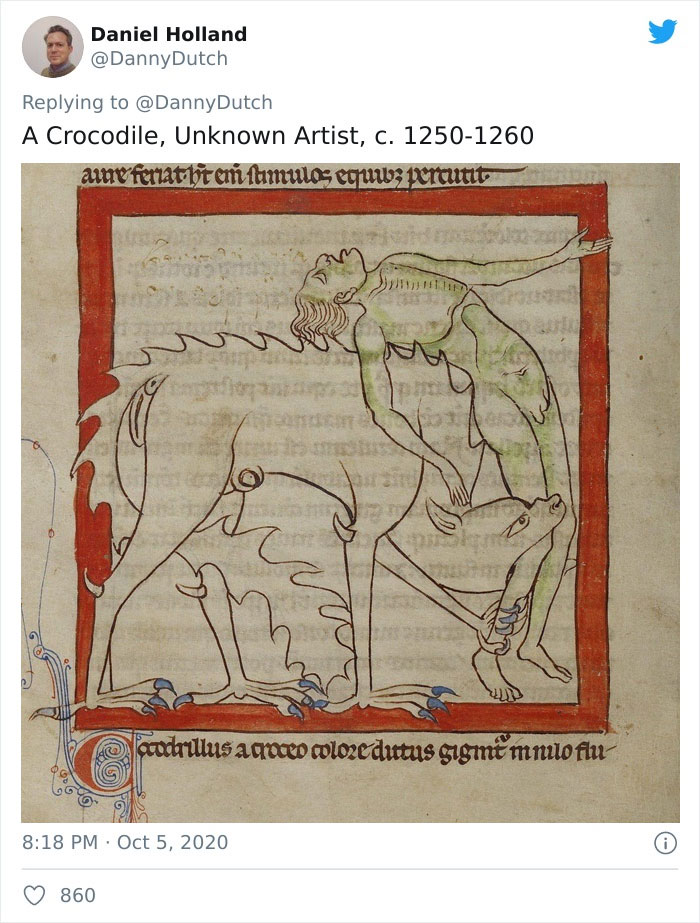 Daniel Holland
@DannyDutch
Replying to @DannyDutch
A Crocodile, Unknown Artist, c. 1250-1260
aure feriat
stimulos percutit
a croceo colore dictus gignit in nilo flu
8:18 PM · Oct 5, 2020
860